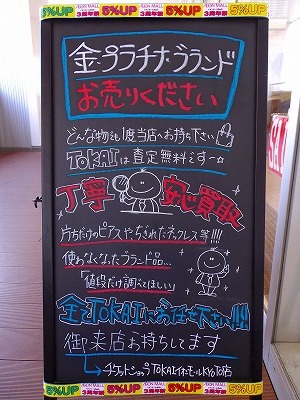 5%UP AEON MALL 3周年祭 5%UP AEON MALL 3周年祭 5%UP
金・プラチナ・ブランド
お売りください
どんな物でも1度当店へお持ち下さい
TOKAIは査定無料です
丁寧 安心買取
片方だけのピアスやちぎれたネックレス等!!!
使わなくなったブランド品…
「値段だけ調べてほしい」
全てTOKAIにお任せ下さい!!!
御来店お持ちしてます
チケットショップTOKAIイオンモールKYOTO店
5%UP 3周年祭 5%UP 3周年祭 5%UP